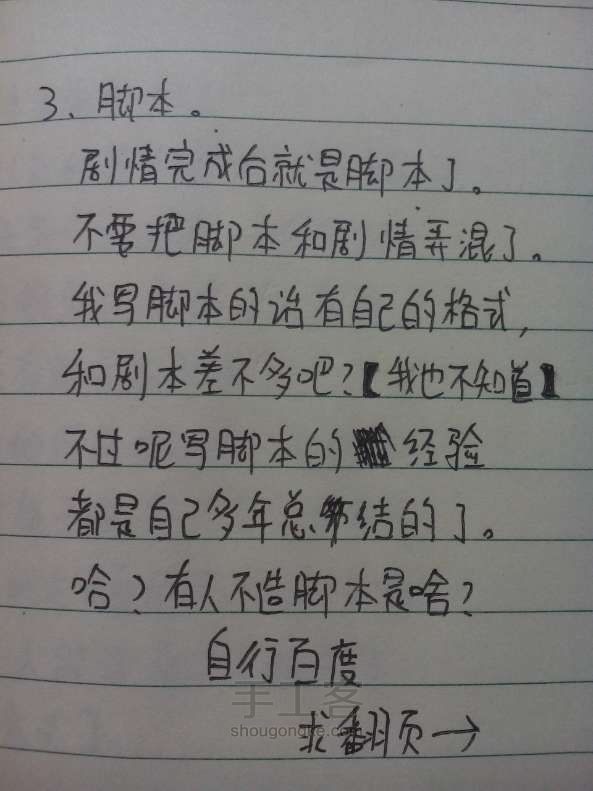 3、脚本。
剧情完成后就是脚本了。
不要把脚本和剧情弄混了。
我写脚本的话有自己的格式,
和剧本差不多吧?【我也不知道】
不过呢写脚本的经验
都是自己多年总结的了。
啥?有人不造脚本是啥?
自行百度
手工客
shougongke.com
求翻页→